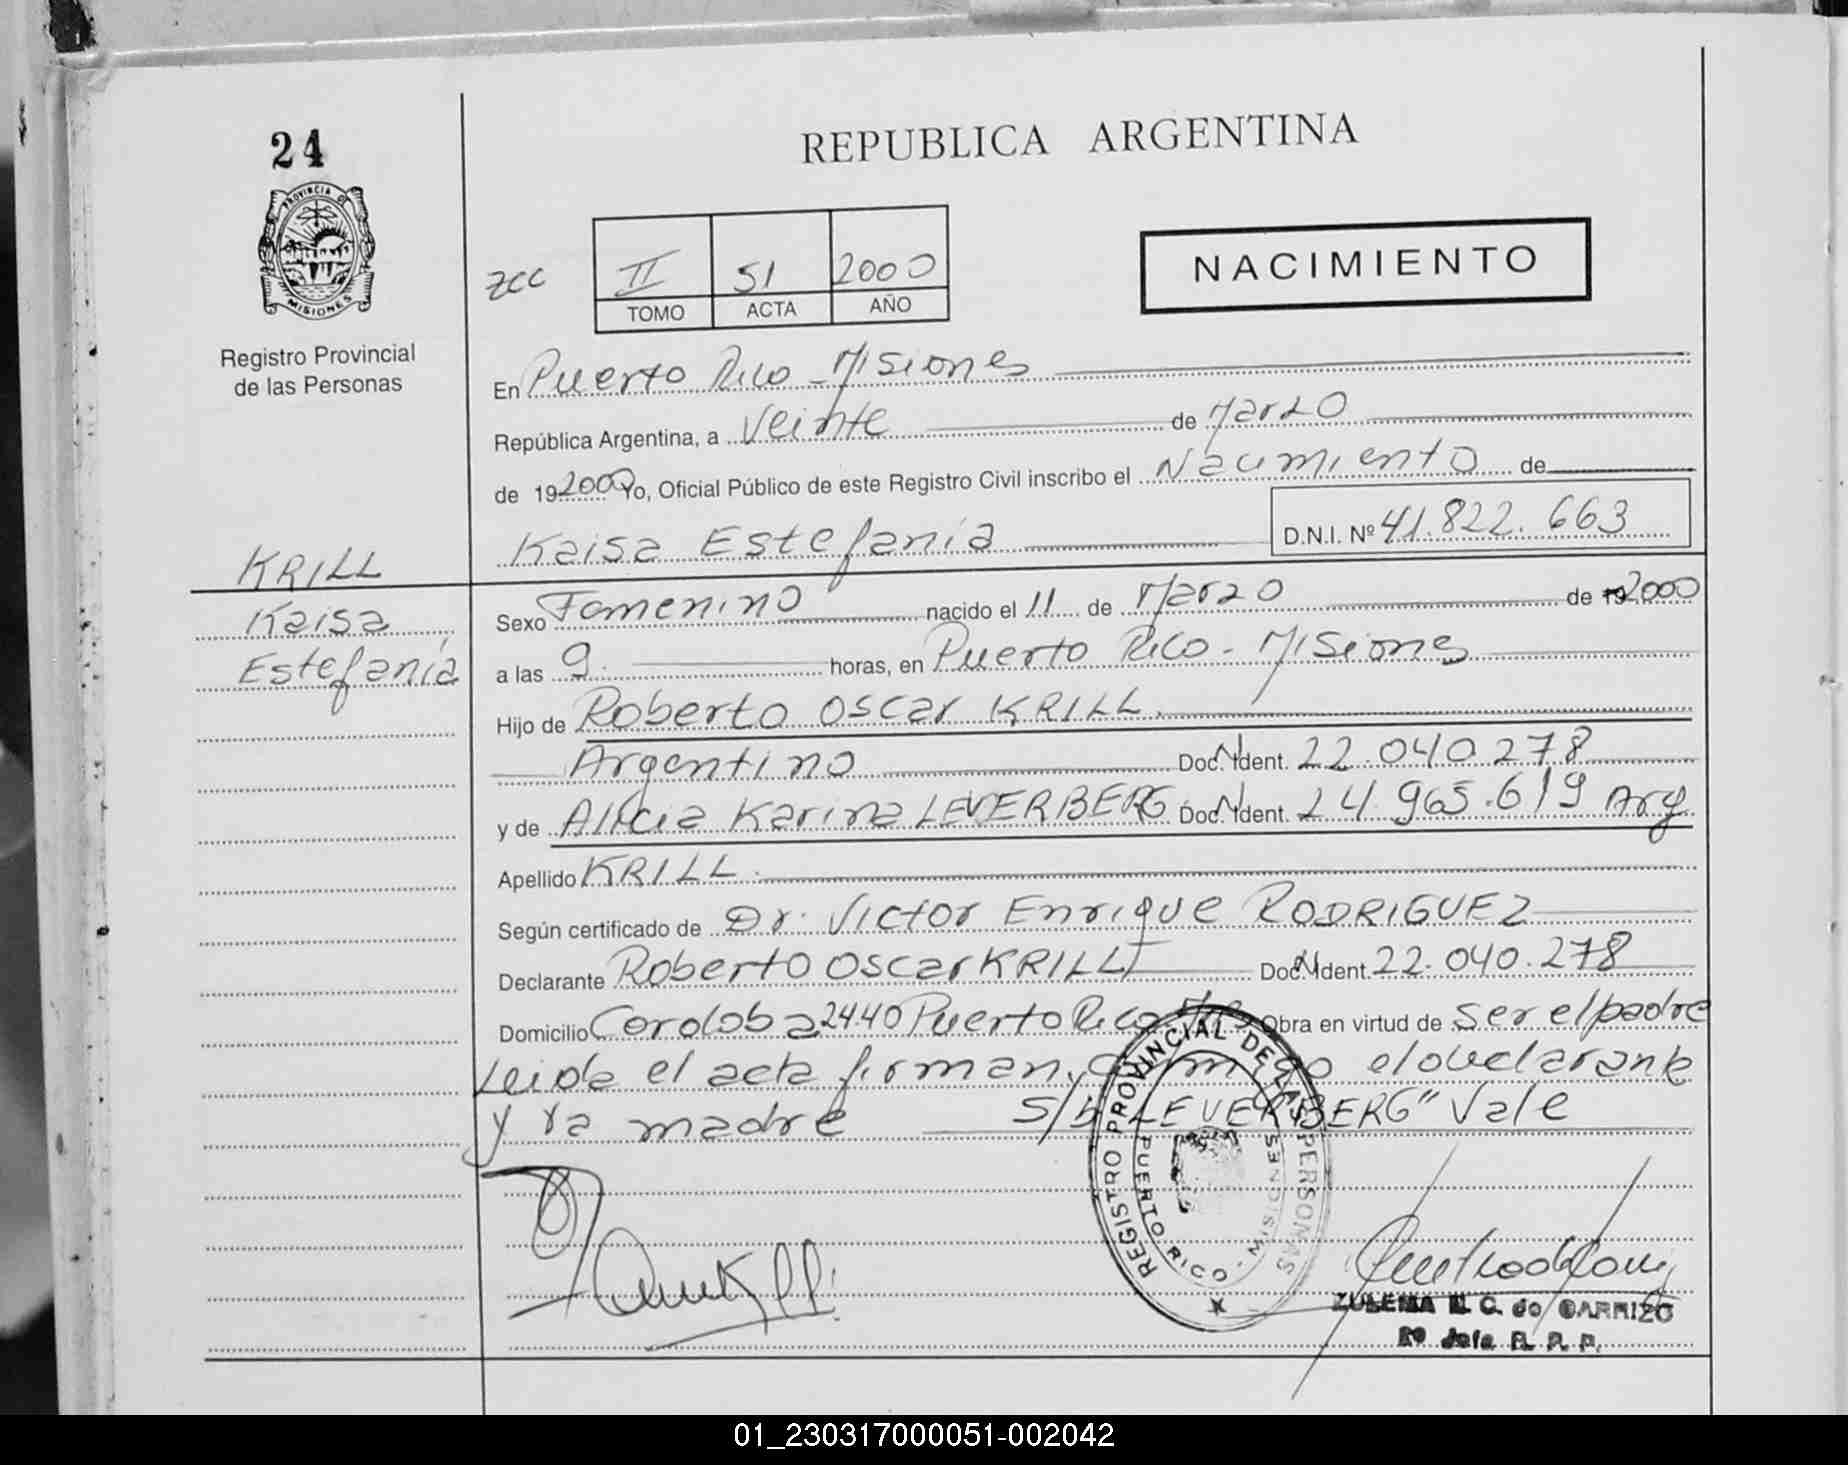 24
REPUBLICA ARGENTINA
PROVINCIA DE
MISIONES
Registro Provincial
de las Personas
zcc
II 51 2000
TOMO ACTA AÑO
NACIMIENTO
En Puerto Rico - Misiones
República Argentina, a Veinte de Marzo
de 19 2000 Yo, Oficial Público de este Registro Civil inscribo el Nacimiento de
Kaisa Estefanía D.N.I. Nº 41.822.663
KRILL
Kaisa
Estefanía
Sexo Femenino nacido el 11 de Marzo de 19 2000
a las 9. horas, en Puerto Rico - Misiones
Hijo de Roberto Oscar KRILL.
Argentino Doc. Ident. 22.040.278
y de Alicia Karina LEVERBERG Doc. Ident. 24.965.619 Arg
Apellido KRILL.
Según certificado de Dr. Victor Enrique RODRIGUEZ
Declarante Roberto Oscar KRILL Doc. Ident. 22.040.278
Domicilio Cordoba 2440 Puerto Rico Mnes Obra en virtud de ser el padre
Leida el acta firman conmigo el declarante
y la madre S/b "LEVERBERG" Vale
REGISTRO PROVINCIAL DE LAS PERSONAS
PUERTO RICO - MISIONES
ZULEMA N. C. de CARRIZO
2º Jefe R. P. P.
01_230317000051-002042